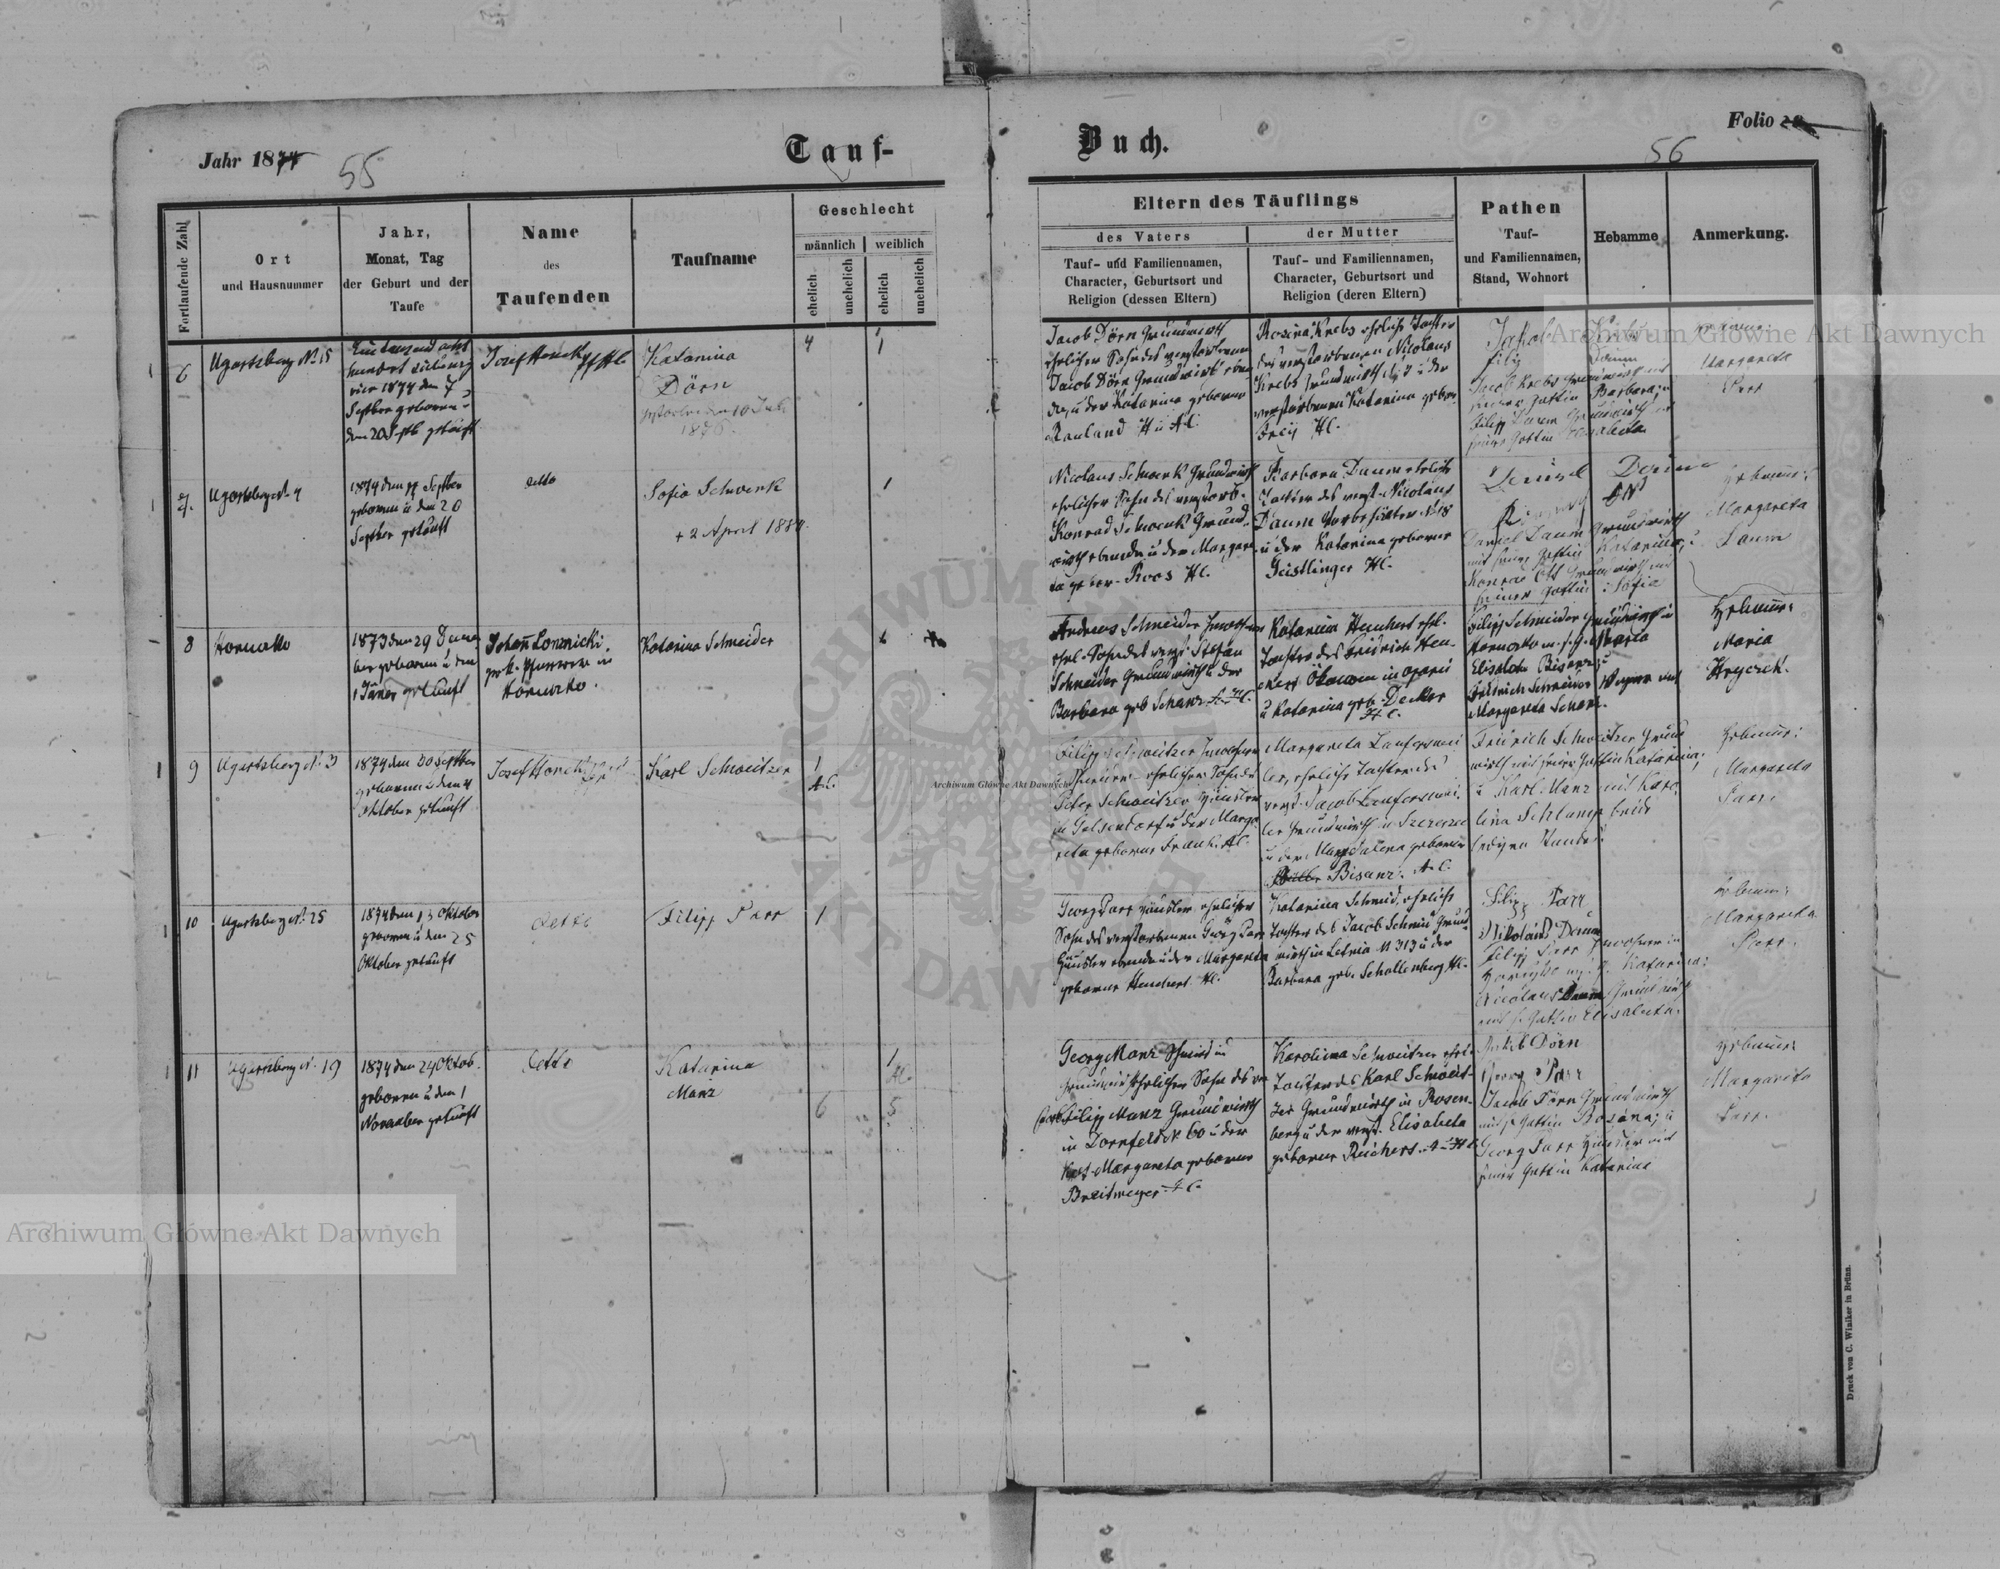 Jahr 1874
55
Tauf-
Buch.
Folio 28
56
Fortlaufende Zahl
Ort
und Hausnummer
Jahr,
Monat, Tag
der Geburt und der
Taufe
Name
des
Taufenden
Taufname
Geschlecht
männlich
weiblich
ehelich
unehelich
ehelich
unehelich
Eltern des Täuflings
des Vaters
Tauf- und Familiennamen,
Character, Geburtsort und
Religion (dessen Eltern)
der Mutter
Tauf- und Familiennamen,
Character, Geburtsort und
Religion (deren Eltern)
Pathen
Tauf-
und Familiennamen,
Stand, Wohnort
Hebamme
Anmerkung.
6
Ugartsberg N. 15
Eintausend acht
hundert siebenzig
vier 1874 den 7
Septber geboren u
den 20 Septb getauft
Josef Honek
Katarina
Dörn
gestorben den 10 Juli
1876.
4
1
Jacob Dörn Grundwirth
ehelicher Sohn des verstorbenen
Jacob Dörn Grundwirth
da u der Katarina geborene
Rauland H u Al.
Rosina Krebs ehelich Tochter
des verstorbenen Nicolaus
Krebs Grundwirth u der
verstorbenen Katarina gebor
Frey Hl.
Jakob Krebs
Filip Daum
Jacob Krebs Grundwirth mit
seiner Gattin Barbara; u
Filipp Daum Grundwirth mit
seiner Gattin Elisabeta
Margareta
Parr
7.
Ugartsberg N. 4
1874 den 17 Septber
geboren u den 20
Septber getauft
detto
Sofia Schwenk
+ 2 April 1884.
1
Nicolaus Schwenk Grundwirth
ehelicher Sohn des verstorb.
Konrad Schwenk Grund-
wirth ebenda u der Margare
ta gebor. Roos Hl.
Barbara Daum eheliche
Tochter des verst. Nicolaus
Daum Vorbesitzer N. 18
u der Katarina geborene
Geistlinger Hl.
Daniel Daum Grundwirth
mit seiner Gattin Katarina; u
Konrad Ott Grundwirth mit
seiner Gattin Sofia
Hebamme:
Margareta
Daum
8
Horucko
1873 den 29 Dezem
ber geboren u den
1 Jäner getauft
Johann Lomnicki,
gr. k. Pfarrer in
Horucko.
Katarina Schneider
Andreas Schneider Inwohner
ehel. Sohn des verst. Stefan
Schneider Grundwirth u der
Barbara geb Schanz
Katarina Heuchert ehel.
Tochter des Fridrich Heu
chert Ökonom in Opari
u Katarina geb. Decker
H. C.
Filipp Schneider Grundwirth in
Horucko m. s. G. Maria
Elisabeta Bisanz; u
Fridrich Schneider Wagner mit
Margareta Schanz.
Hebamme:
Maria
Hryczik.
9
Ugartsberg N. 3
1874 den 30 Septber
geboren u den 4
Oktober getauft
Josef Honek
Karl Schweitzer
1
A.C.
Filipp Schweitzer Inwohner
ehelicher Sohn des
Peter Schweitzer Häusler
in Gelsendorf u der Marga
reta geborene Frank. Al.
Margareta Laufersweil
ler, eheliche Tochter des
verst. Jacob Laufersweil
ler Grundwirth in Szerzec
u der Magdalena geborene
Bisanz. A.C.
Fridrich Schweitzer Grund
wirth mit seiner Gattin Katarina;
u Karl Manz mit Karo
lina Schlamp beide
ledigen Standes.
Hebamme:
Margareta
Parr.
10
Ugartsberg N. 25
1874 den 13 Oktober
geboren u den 25
Oktober getauft
detto
Filipp Parr
1
Georg Parr Häusler ehelicher
Sohn des verstorbenen Georg Parr
Häusler ebenda u der Margareta
geborene Heuchert. Hl.
Katarina Schmid, eheliche
Tochter des Jacob Schmid Grund
wirth in Letnia N 313 u der
Barbara geb. Schollenberg Hl.
Filipp Parr
Nikolaus Daum
Filipp Parr Inwohner in
Katarina;
Nicolaus Daum Grundwirth
mit s. Gattin Elisabeta.
Hebamme:
Margareta
Parr.
11
Ugartsberg N. 19
1874 den 24 Oktob.
geboren u den 1
November getauft
detto
Katarina
Manz
1
6
5
Georg Manz Schmid u
Grundwirth ehelicher Sohn des
Filipp Manz Grundwirth
in Dornfeld N 60 u der
Margareta geborene
Breitmeyer H C.
Karolina Schweitzer ehel.
Tochter des Karl Schweit-
zer Grundwirth in Rosen-
berg u der verst. Elisabeta
geborene Reichert.
Jakob Dörn
Georg Parr
Jacob Dörn Grundwirth
mit s. Gattin Rosina; u
Georg Parr Häusler mit
seiner Gattin Katarina
Hebamme:
Margareta
Parr.
Druck von C. Winiker in Brünn.
Archiwum Główne Akt Dawnych
Archiwum Główne Akt Dawnych
Archiwum Główne Akt Dawnych
ARCHIWUM
AKT DAWNYCH